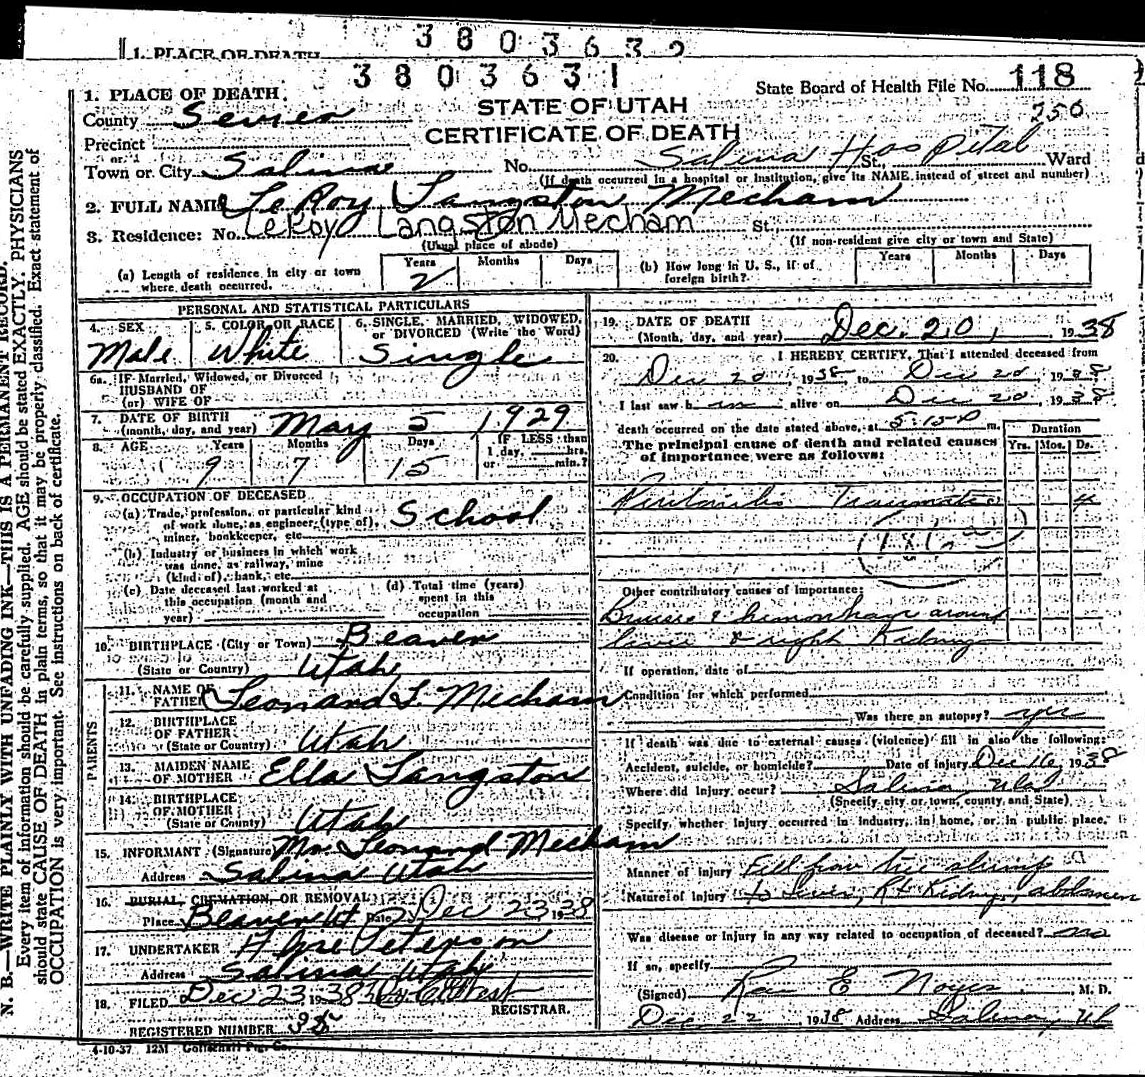 1. PLACE OF DEATH
3803632
3803631
State Board of Health File No. 118
250
1. PLACE OF DEATH
STATE OF UTAH
County Sevier
CERTIFICATE OF DEATH
Precinct
or
Town or City Salina No. Salina Hospital St., Ward
(If death occurred in a hospital or institution, give its NAME instead of street and number)
2. FULL NAME LeRoy Langston Mecham
3. Residence: No. LeRoy Langston Mecham St.,
(Usual place of abode) (If non-resident give city or town and State)
(a) Length of residence in city or town where death occurred. Years 2 Months Days
(b) How long in U. S., if of foreign birth? Years Months Days
PERSONAL AND STATISTICAL PARTICULARS
4. SEX 5. COLOR OR RACE 6. SINGLE, MARRIED, WIDOWED, or DIVORCED (Write the Word)
Male White Single
6a. IF Married, Widowed, or Divorced
HUSBAND OF
(or) WIFE OF
7. DATE OF BIRTH
(month, day, and year) May 5 1929
8. AGE Years Months Days IF LESS than 1 day, hrs. or min.?
9 7 15
9. OCCUPATION OF DECEASED
(a) Trade, profession, or particular kind of work done, as engineer (type of), miner, bookkeeper, etc. School
(b) Industry or business in which work was done, as railway, mine (kind of), bank, etc.
(c) Date deceased last worked at this occupation (month and year)
(d) Total time (years) spent in this occupation
10. BIRTHPLACE (City or Town) Beaver
(State or Country) Utah
PARENTS
11. NAME OF FATHER Leonard L. Mecham
12. BIRTHPLACE OF FATHER
(State or Country) Utah
13. MAIDEN NAME OF MOTHER Ella Langston
14. BIRTHPLACE OF MOTHER
(State or Country) Utah
15. INFORMANT (Signature) Mrs. Leonard Mecham
Address Salina Utah
16. BURIAL, CREMATION, OR REMOVAL
Place Beaver Ut Date Dec 23 1938
17. UNDERTAKER Peterson
Address Salina Utah
18. FILED Dec 23 1938 West
REGISTRAR.
REGISTERED NUMBER 35
4-10-37 12M
19. DATE OF DEATH
(Month, day, and year) Dec. 20, 1938
20. I HEREBY CERTIFY, That I attended deceased from
Dec 20 1938 to Dec 20, 1938
I last saw h im alive on Dec 20, 1938
death occurred on the date stated above, at 5:15 P m.
The principal cause of death and related causes of importance were as follows:
Duration
Yrs. Mos. Ds.
Peritonitis Traumatic 4
Other contributory causes of importance:
Bruise & hemorrhage around
liver & right Kidney
If operation, date of
Condition for which performed
Was there an autopsy? yes
If death was due to external causes (violence) fill in also the following:
Accident, suicide, or homicide? Date of injury Dec 16, 1938
Where did injury occur? Salina, Utah
(Specify city or town, county, and State)
Specify whether injury occurred in industry, in home, or in public place.
Manner of injury Fell from tree
Nature of injury to liver, Rt Kidney, abdomen
Was disease or injury in any way related to occupation of deceased? no
If so, specify
(Signed) E Noyes M. D.
Dec 22 1938 Address Salina, Ut
N. B.—WRITE PLAINLY WITH UNFADING INK—THIS IS A PERMANENT RECORD.
Every item of information should be carefully supplied. AGE should be stated EXACTLY. PHYSICIANS
should state CAUSE OF DEATH in plain terms, so that it may be properly classified. Exact statement of
OCCUPATION is very important. See instructions on back of certificate.